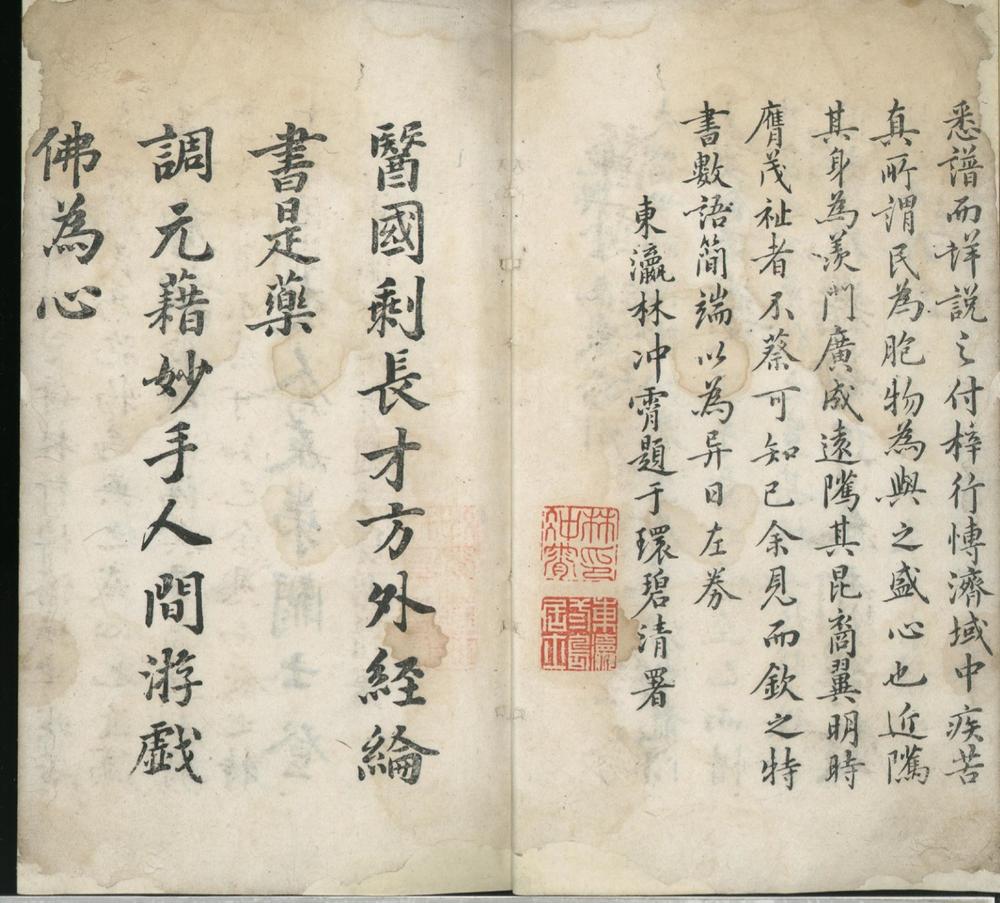 悉譜而詳說之付梓行博濟域中疾苦
真所謂民為胞物為與之盛心也近隲
其身為羨門廣成遠隲其昆裔翼明時
膺茂祉者不蔡可知已余見而欽之特
書數語簡端以為异日左券
東瀛林冲霄題于環碧清署
醫國剩長才方外経綸
書是藥
調元藉妙手人間游戲
佛為心